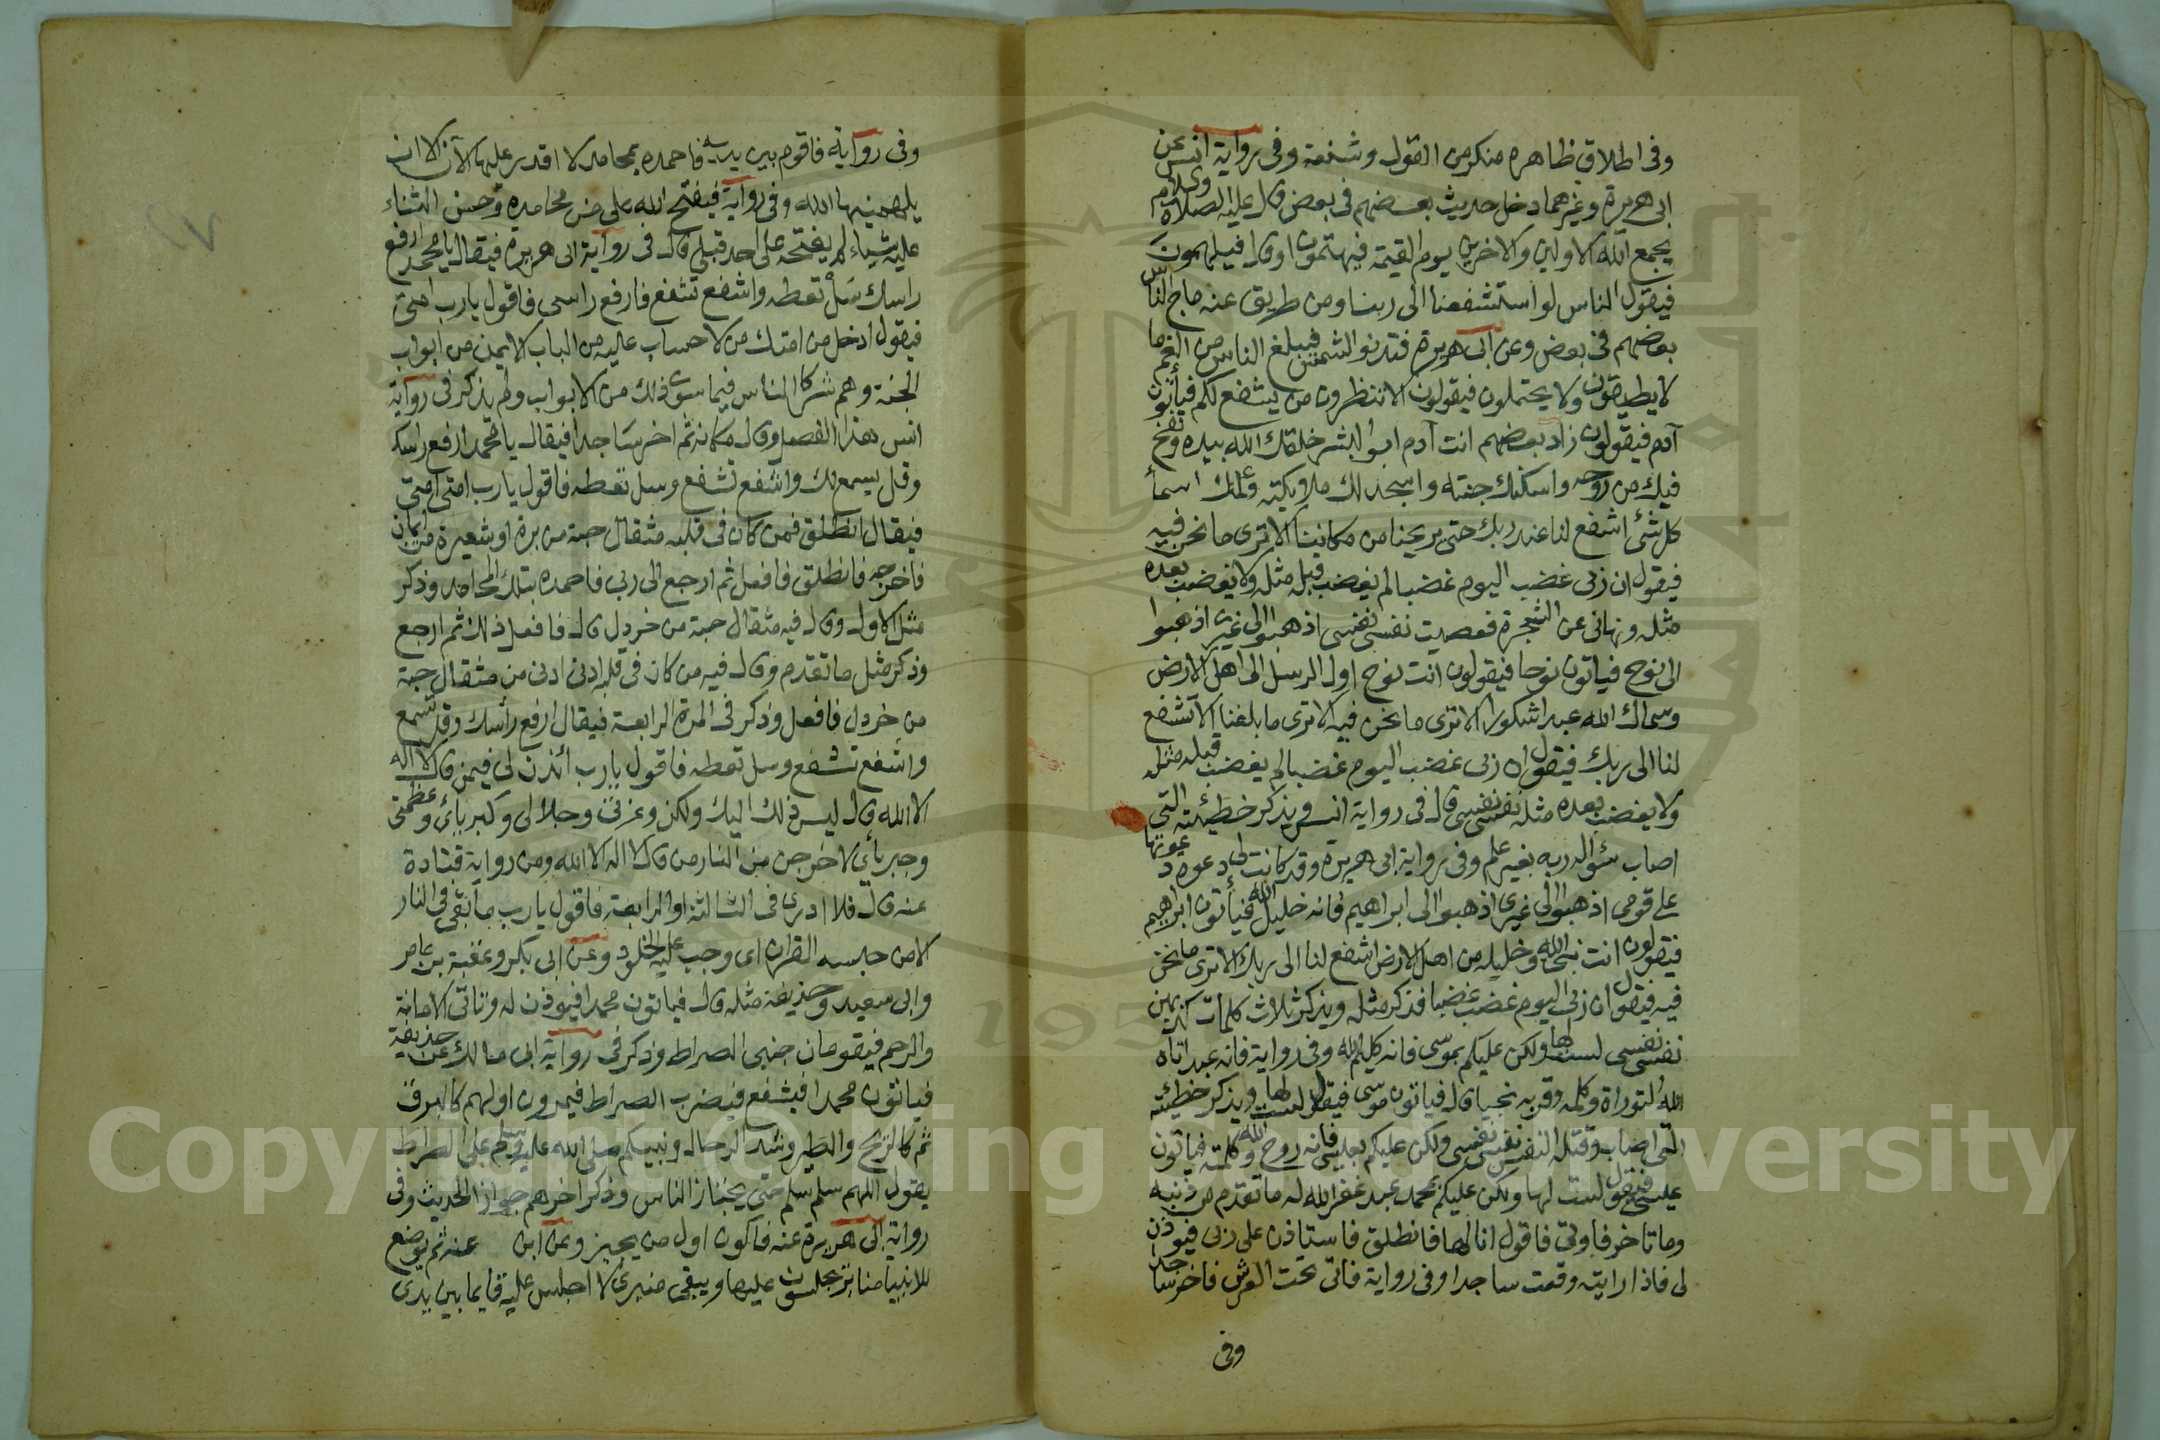 وفى اطلاق ظاهره منكر من القول وشنعة وفى رواية انس عن
ابى هريرة وغيرهما دخل حديث بعضهم فى بعض قال عليه الصلاة والسلام
يجمع الله الاولين والاخرين يوم القيمة فيهتمون او قال فيلهمون
فيقول الناس لو استشفعنا الى ربنا ومن طريق عنه ماج الناس
بعضهم فى بعض وعن ابى هريرة فتدنو الشمس فيبلغ الناس من الغم ما
لا يطيقون ولا يحتملون فيقولون الا تنظرون من يشفع لكم فيأتون
آدم فيقولون زاد بعضهم انت آدم ابو البشر خلقك الله بيده ونفخ
فيك من روحه واسكنك جنته واسجد لك ملايكته وعلمك اسماء
كل شئ اشفع لنا عند ربك حتى يريحنا من مكاننا الا ترى ما نحن فيه
فيقول ان ربى غضب اليوم غضبا لم يغضب قبله مثله ولا يغضب بعده
مثله ونهانى عن الشجرة فعصيت نفسى نفسى اذهبوا الى غيرى اذهبوا
الى نوح فيأتون نوحا فيقولون انت نوح اول الرسل الى اهل الارض
وسماك الله عبدا شكورا الا ترى ما نحن فيه الا ترى ما بلغنا الا تشفع
لنا الى ربك فيقول ان ربى غضب اليوم غضبا لم يغضب قبله مثله
ولا يغضب بعده مثله نفسى نفسى قال فى رواية انس ويذكر خطيئته التى
اصاب سؤاله ربه بغير علم وفى رواية ابى هريرة وقد كانت لى دعوة دعوتها
على قومى اذهبوا الى غيرى اذهبوا الى ابراهيم فانه خليل الله فيأتون ابراهيم
فيقولون انت نبى الله وخليله من اهل الارض اشفع لنا الى ربك الا ترى ما نحن
فيه فيقول ان ربى اليوم غضب غضبا فذكر مثله ويذكر ثلاث كلمات كذبهن
نفسى نفسى لست لها ولكن عليكم بموسى فانه كليم الله وفى رواية فانه عبد اتاه
الله التوراة وكلمه وقربه نجيا قال فيأتون موسى فيقول لست لها ويذكر خطيئته
التى اصاب وقتله النفس نفسى نفسى ولكن عليكم بعيسى فانه روح الله وكلمته فيأتون
عيسى فيقول لست لها ولكن عليكم بمحمد عبد غفر الله له ما تقدم من ذنبه
وما تاخر فاوتى فاقول انا لها فانطلق فاستاذن على ربى فيوذن
لى فاذا رايته وقعت ساجدا وفى رواية فآتى تحت العرش فاخر ساجدا
وفى
وفى رواية فاقوم بين يديه فاحمده بمحامد لا اقدر عليها الآن الا ان
يلهمنيها الله وفى رواية فيفتح الله على من محامده وحسن الثناء
عليه شيئا لم يفتحه على احد قبلى قال فى رواية ابى هريرة فيقال يا محمد ارفع
راسك سل تعطه واشفع تشفع فارفع راسى فاقول يارب امتى
فيقول ادخل من امتك من لا حساب عليه من الباب الايمن من ابواب
الجنة وهم شركا الناس فيما سوى ذلك من الابواب ولم يذكر فى رواية
انس هذا الفصل وقال مكانه ثم اخر ساجدا فيقال يا محمد ارفع راسك
وقل يسمع لك واشفع تشفع وسل تعطه فاقول يارب امتى امتى
فيقال انطلق فمن كان فى قلبه مثقال حبة من برة او شعيرة من ايمان
فاخرجه فانطلق فافعل ثم ارجع الى ربى فاحمده بتلك المحامد وذكر
مثل الاول وقال فيه مثقال حبة من خردل قال فافعل ذلك ثم ارجع
وذكر مثل ما تقدم وقال فيه من كان فى قلبه ادنى ادنى من مثقال حبة
من خردل فافعل وذكر فى المرة الرابعة فيقال ارفع رأسك وقل تسمع
واشفع تشفع وسل تعطه فاقول يارب ائذن لى فيمن قال لا اله
الا الله قال ليس ذلك اليك ولكن وعزتى وجلالى وكبريائى وعظمتى
وجبريائى لاخرجن من النار من قال لا اله الا الله ومن رواية قتادة
عنه قال فلا ادرى فى الثالثة او الرابعة فاقول يارب ما بقى فى النار
الا من حبسه القران اى وجب عليه الخلود وعن ابى بكر وعقبة بن عامر
وابى سعيد وحذيفة مثله قال فيأتون محمدا فيوذن له وتأتى الامانة
والرحم فيقومان جنبى الصراط وذكر فى رواية ابى مالك عن حذيفة
فيأتون محمدا فيشفع فيضرب الصراط فيمرون اولهم كالبرق
ثم كالريح والطير وشد الرحال ونبيكم صلى الله عليه وسلم على الصراط
يقول اللهم سلم سلم حتى يجتاز الناس وذكر اخرهم جوازا الحديث وفى
رواية ابى هريرة عنه فاكون اول من يجيز وعن ابن عنه ثم توضع
للانبيا منابر يجلسون عليها ويبقى منبرى لا اجلس عليه قايما بين يدى
Copyright © King Saud University